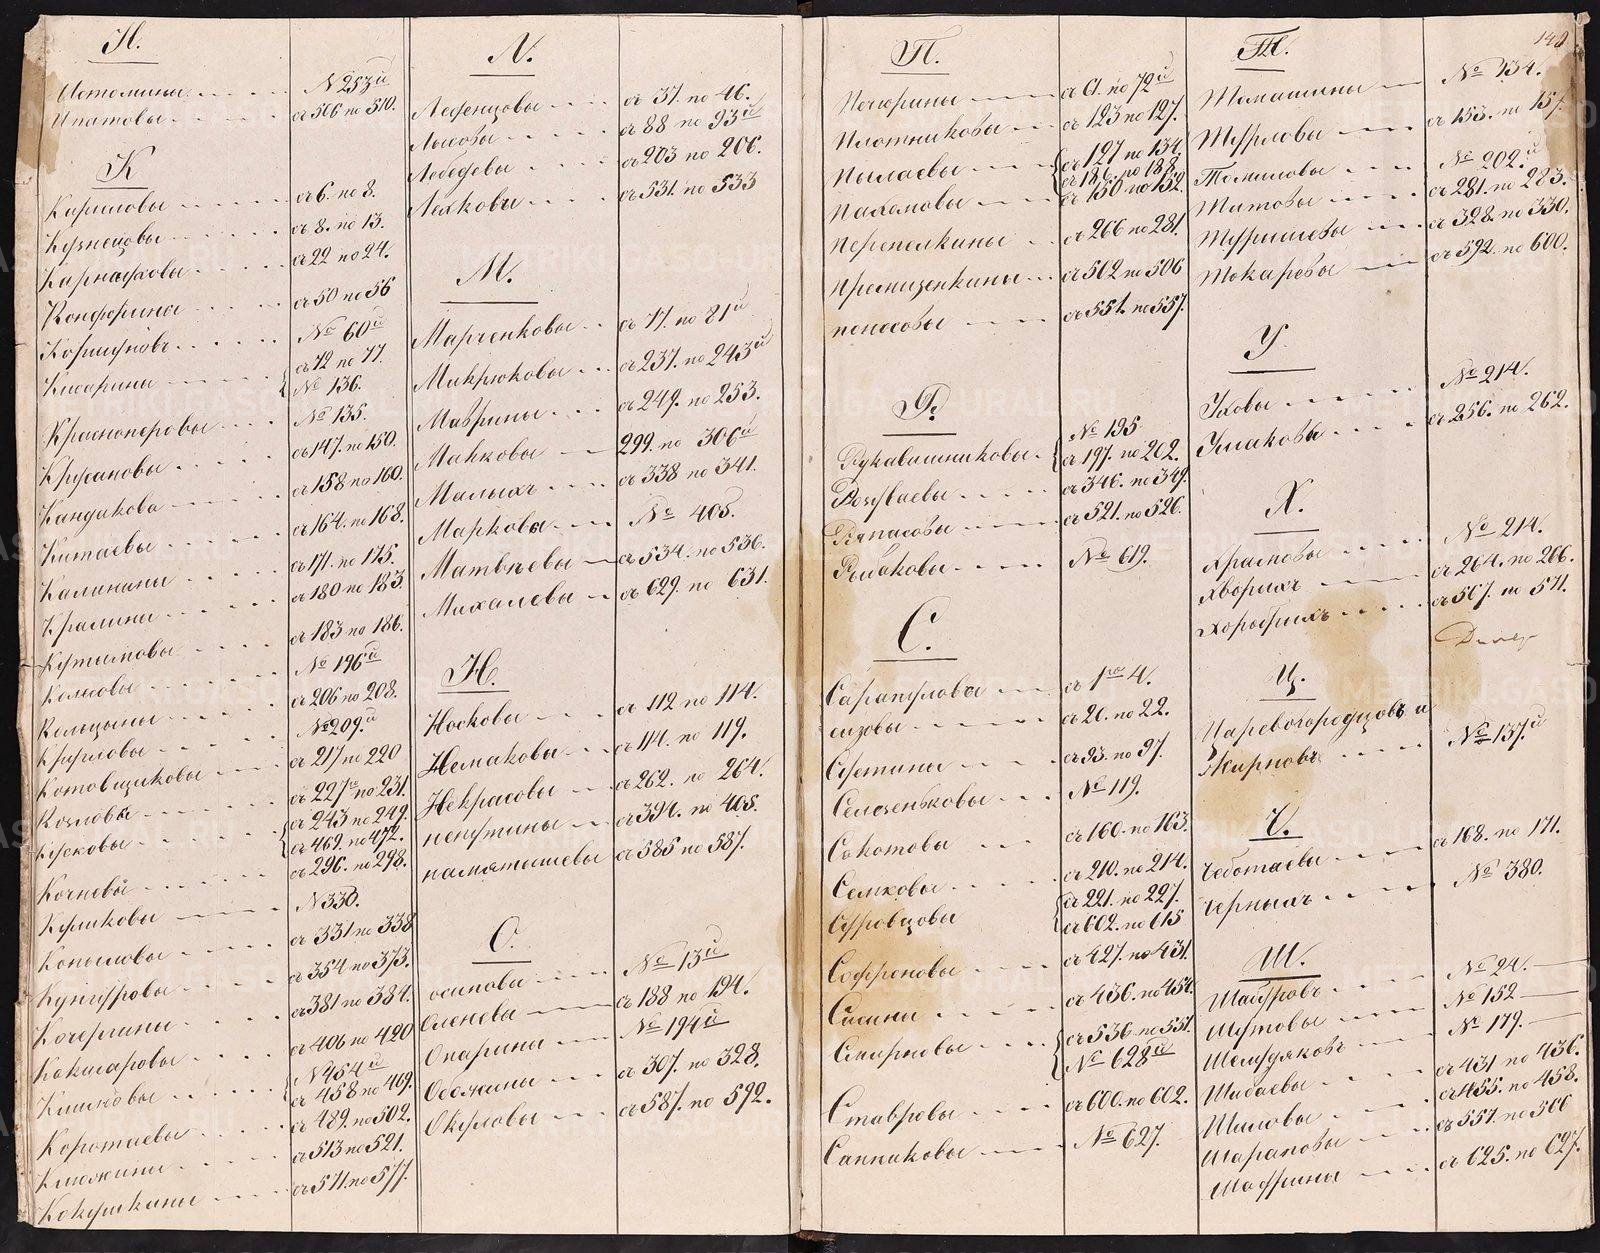 И.
Истомины №253й
Ипатовы съ 506 по 510.
К
Кариловы съ 6. по 8.
Кузнецовы съ 8. по 13.
Карнауховы съ 22 по 24.
съ 50 по 56
Коршуновъ № 60й
Кисарины съ 72 по 77.
№ 136.
Красноперовы № 135.
съ 147. по 150.
съ 158 по 160.
Китаевы съ 164. по 168.
Калинины съ 171. по 175.
съ 180 по 183
съ 183 по 186.
№ 196й
съ 206 по 208.
Кругловы №209.й
Котовщиковы съ 217 по 220
Козловы съ 227го по 231.
съ 243 по 249.
съ 469. по 472.
Кочневы съ 296. по 298.
№330.
Копыловы съ 331 по 338
съ 354 по 373.
Кочергины съ 381 по 384.
Кокшаровы съ 406 по 420
№454й
съ 458 по 469.
Коротаевы съ 489. по 502.
съ 513 по 521.
Кокушкины съ 571. по 577.
Л.
Леденцовы съ 37. по 46.
съ 88 по 93й
Лебедевы съ 203 по 206.
съ 531. по 533
М.
Марченковы съ 77. по 81й
Микрюковы съ 237. по 243й
Маврины съ 249. по 253.
Маньковы 299. по 306й
Малыхъ съ 338 по 341.
Марковы № 405.
Матвѣевы съ 534. по 536.
Михалевы съ 629. по 631.
Н.
Носковы съ 112 по 114.
съ 114. по 119.
Некрасовы съ 262. по 264.
съ 394. по 405.
съ 585 по 587.
О.
осиповы № 13й
Оленевы съ 188 по 194.
Опарины № 194й
съ 307. по 328.
Окуловы съ 587. по 592.
140
П.
Печорины съ 61. по 72й
Плотниковы съ 123 по 127.
Пылаевы съ 127 по 134
съ 186. по 188.
Пахомовы съ 150 по 152.
Перепелкины съ 266 по 281.
съ 502 по 506
поносовы съ 551. по 557.
Р.
Рукавишниковы № 195
съ 197. по 202.
съ 346. по 349.
съ 521. по 526.
Рыбаковы № 619.
С.
Сарапуловы съ 1го 4.
сизовы съ 21. по 22.
съ 93. по 97.
Селезеньковы № 119.
съ 160. по 163.
Семковы съ 210. по 214.
Суровцовы съ 221. по 227.
съ 602. по 615
Софроновы съ 427. по 431.
Сисины съ 436. по 454.
Смирновы съ 536. по 551.
№ 628й
Ставровы съ 600. по 602.
Санниковы № 627.
Т.
Томашины № 134.
съ 153. по 157.
Томиловы № 202.й
Титовы съ 281. по 283.
съ 328. по 330.
Токаревы съ 592. по 600.
У.
Уховы № 214.
Ушаковы съ 256. по 262.
Х.
Храмовы № 214.
Хворыхъ съ 264. по 266.
съ 567. по 571.
Ц.
Царевогородцовъ и
Жирновъ № 137.й
Ч.
Чеботаевы съ 168. по 171.
Черныхъ № 380.
Ш.
№ 24.
Шутовы № 152
№ 179.
Шибаевы съ 431 по 436.
Шиловы съ 455. по 458.
Шараповы съ 557. по 566
съ 625. по 627.